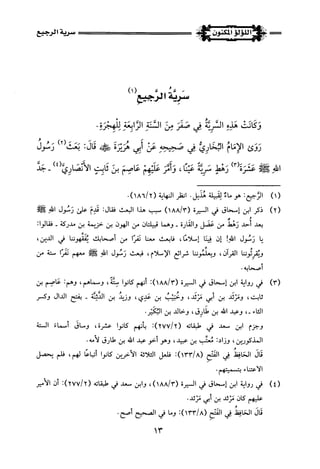 اللؤلؤ المكنون
سرية الرجيع
سَرِيَّةُ الرَّجِيعِ (١)
وَكَانَتْ هَذِهِ السَّرِيَّةُ فِي صَفَرَ مِنَ السَّنَةِ الرَّابِعَةِ لِلْهِجْرَةِ.
رَوَى الإِمَامُ البُخَارِيُّ فِي صَحِيحِهِ عَنْ أَبِي هُرَيْرَةَ ﷺ قَالَ: بَعَثَ (٢) رَسُولُ
اللهِ ﷺ عَشَرَةَ (٣) رَهْطٍ سَرِيَّةً عَيْنًا، وَأَمَّرَ عَلَيْهِمْ عَاصِمَ بنَ ثَابِتٍ الأَنْصَارِيَّ (٤) - جَدَّ
(١) الرَّجِيع: هو ماءٌ لِقَبِيلَة هُذَيل. انظر النهاية (١٨٦/٢)
(٢) ذكر ابن إسحاق في السيرة (١٨٨/٣) سبب هذا البعث فقال: قَدِمَ على رَسُول الله ﷺ
بعد أُحد رَهْطٌ من عَضَل والقَارة ـ وهما قبيلتان من الهون بن خزيمة بن مدركة ـ فقالوا:
يا رَسُول الله! إن فِينَا إسلامًا، فابعث معنا نَفَرًا من أصحابك يُفَقِّهوننا في الدين،
ويُقرِئُوننا القرآن، ويعلِّمُوننا شرائع الإسلام، فبعث رَسُول الله ﷺ معهم نَفَرًا ستة من
أصحابه.
(٣) في رواية ابن إسحاق في السيرة (١٨٨/٣): أنهم كانوا سِتَّةً، وسماهم، وهم: عَاصِم بن
ثابت، ومَرْثَد بن أبي مَرْثَد، وخُبَيْبُ بن عَدِي، وزيدُ بن الدَّثِنَّة - بفتح الدال وكسر
الثاء ـ، وعبد الله بن طَارِق، وخالد بن البُكَيْر.
وجزم ابن سعد في طبقاته (٢٧٧/٢): بأنهم كانوا عشرة، وساق أسماءَ الستة
المذكورين، وزاد: مُعَتِّب بن عبيد، وهو أخو عبد الله بن طارق لأمه.
قَالَ الحَافِظُ فِي الفَتْحِ (١٣٣/٨): فلعل الثلاثة الآخرين كانوا أتباعًا لهم، فلم يحصل
الاعتناء بتسميتهم.
(٤) في رواية ابن إسحاق في السيرة (١٨٨/٣)، وابن سعد في طبقاته (٢٧٧/٢): أن الأمير
عليهم كان مَرْثد بن أبي مَرْثد.
قَالَ الحَافِظُ فِي الفَتْحِ (١٣٣/٨): وما في الصحيح أصح.
١٣